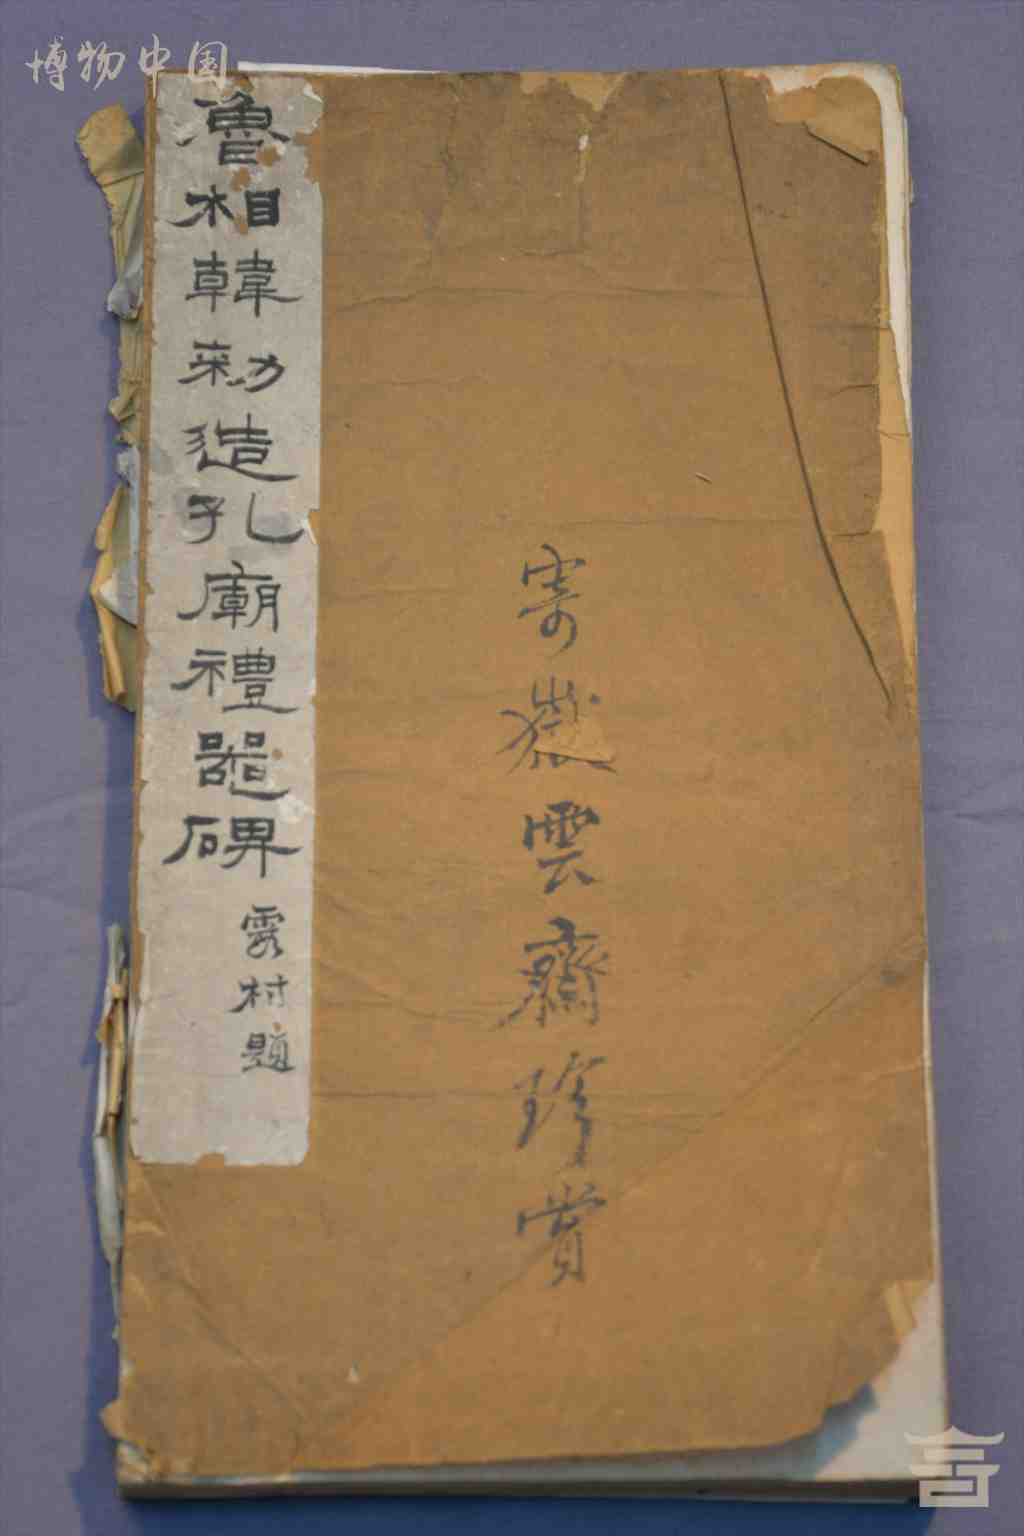 博物中国
寄嶽雲齋珍賞
魯相韓勑造孔廟禮器碑
霞村題